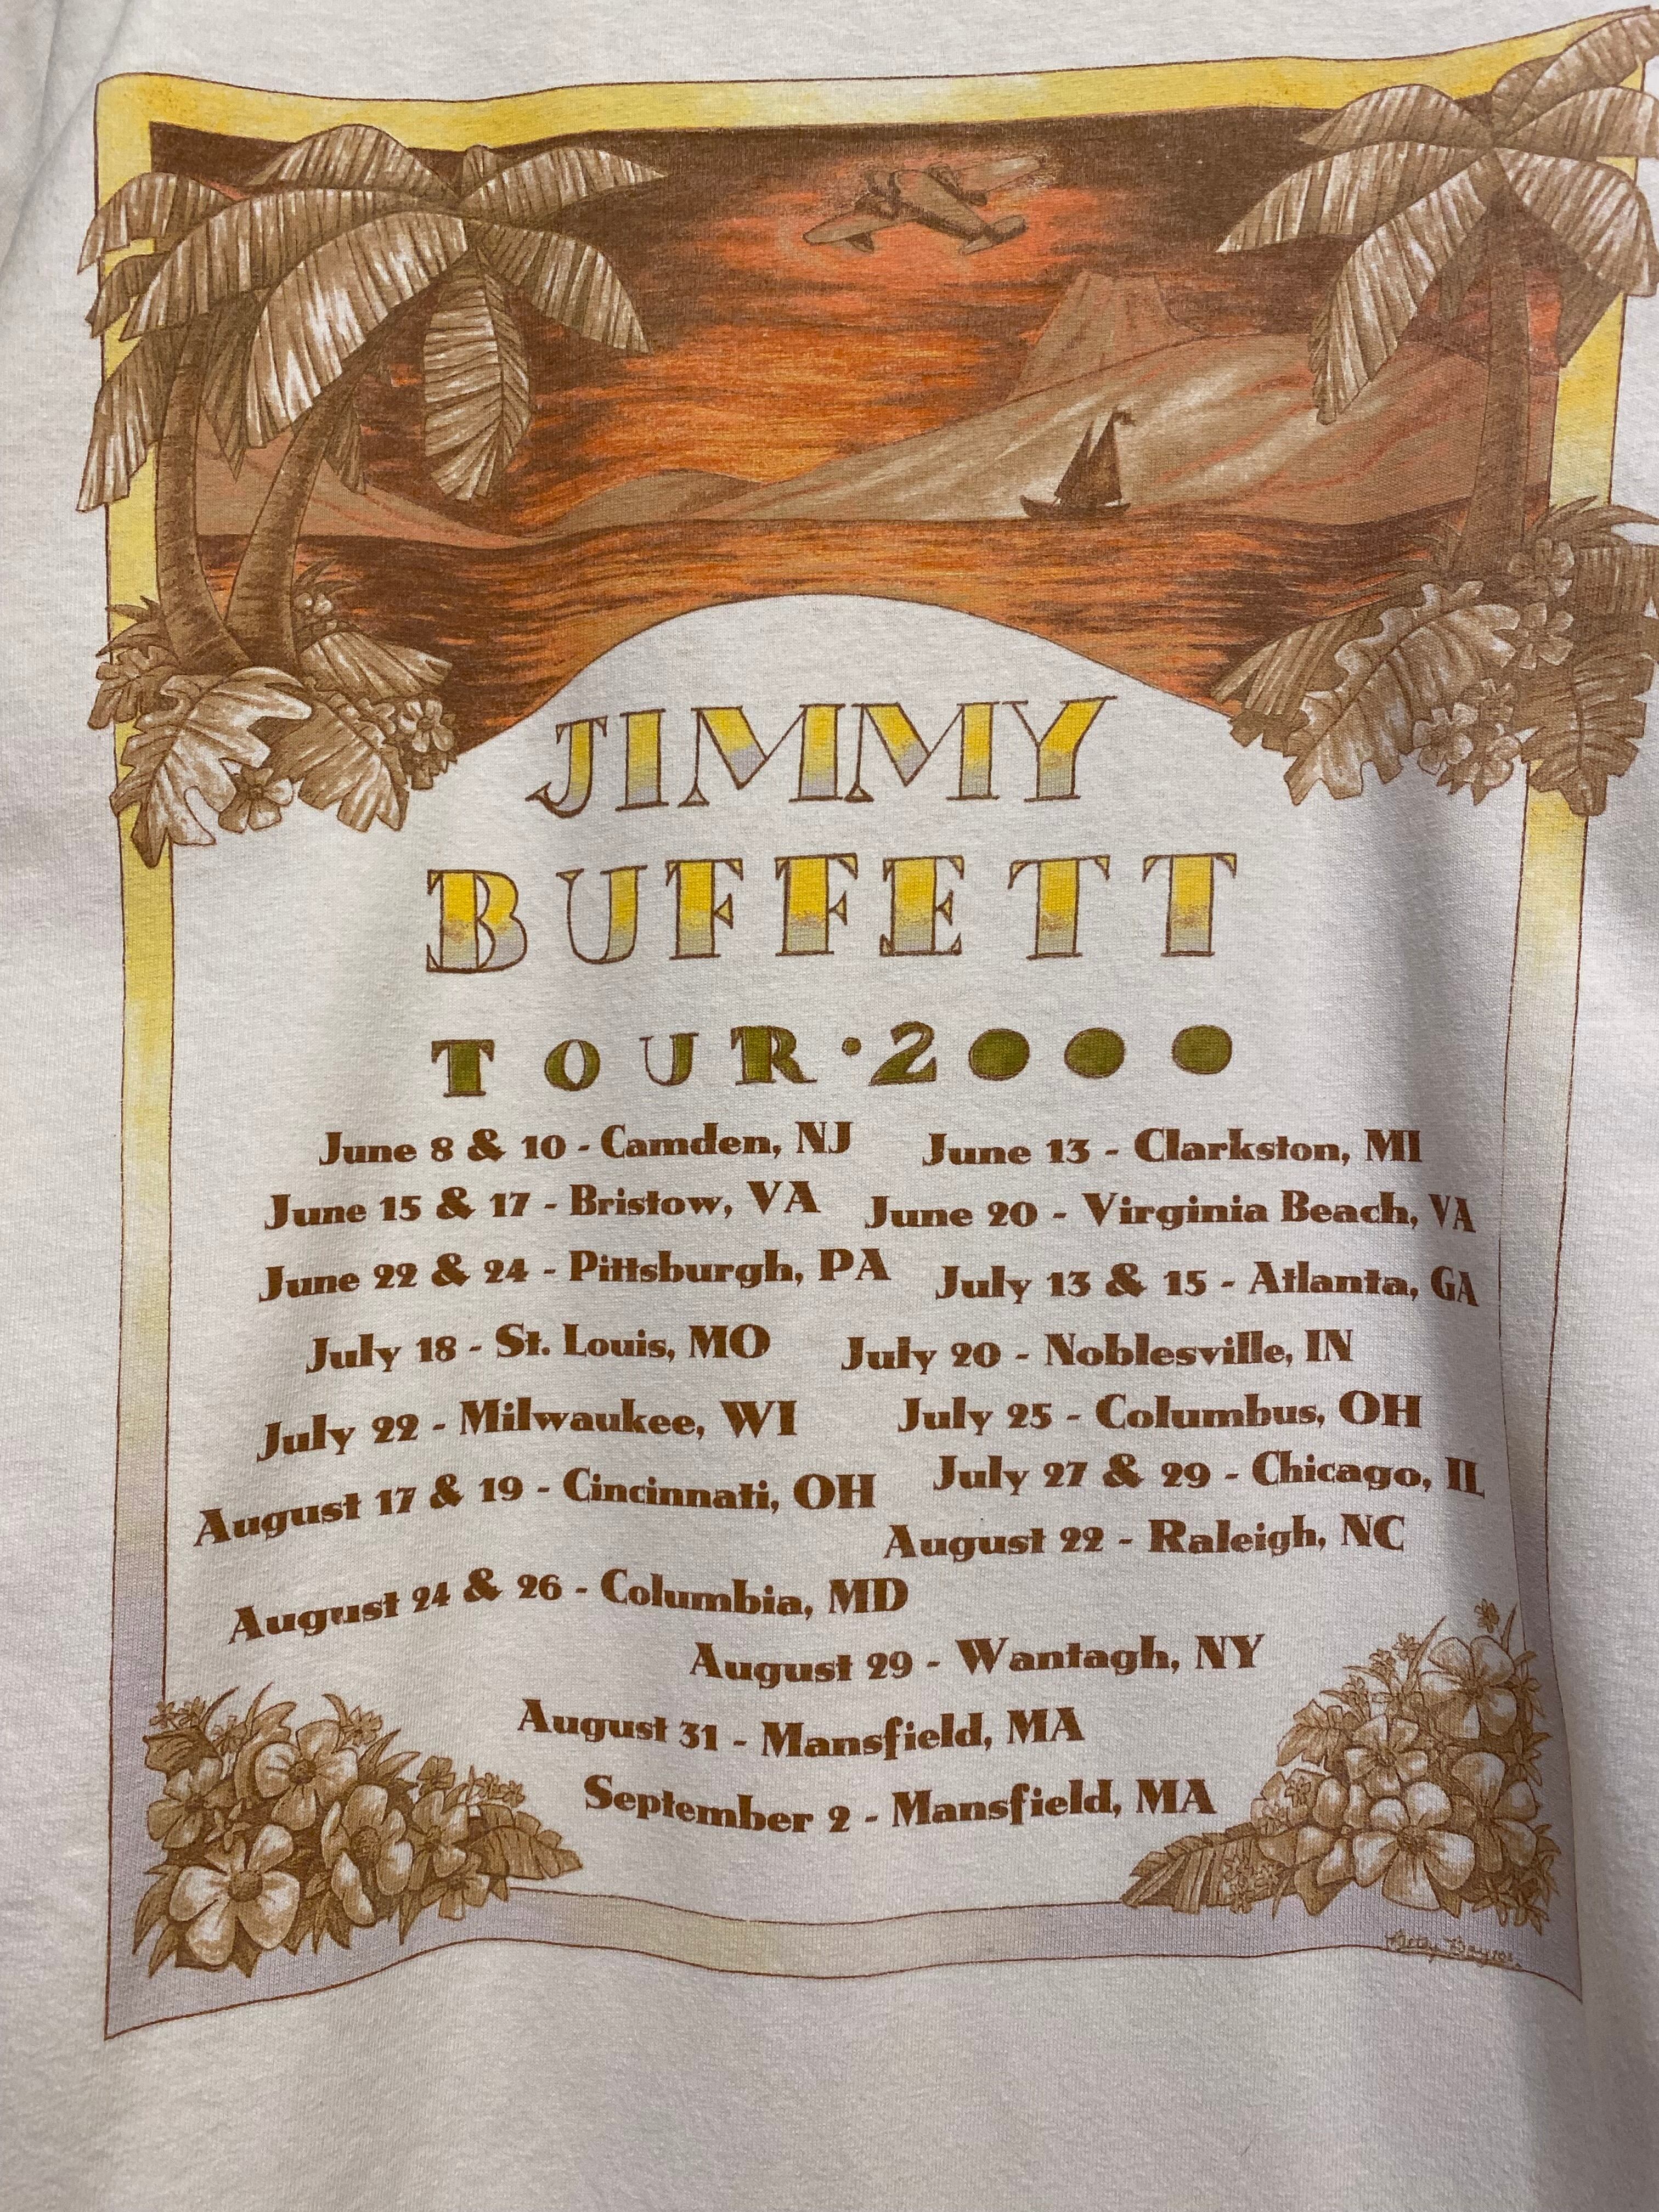 JIMMY
BUFFETT
TOUR·2000
June 8 & 10 - Camden, NJ
June 13 - Clarkston, MI
June 15 & 17 - Bristow, VA
June 20 - Virginia Beach, VA
June 22 & 24 - Pittsburgh, PA
July 13 & 15 - Atlanta, GA
July 18 - St. Louis, MO
July 20 - Noblesville, IN
July 22 - Milwaukee, WI
July 25 - Columbus, OH
July 27 & 29 - Chicago, IL
August 17 & 19 - Cincinnati, OH
August 22 - Raleigh, NC
August 24 & 26 - Columbia, MD
August 29 - Wantagh, NY
August 31 - Mansfield, MA
September 2 - Mansfield, MA